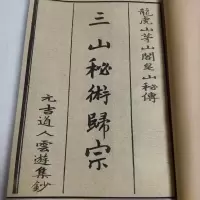 龍虎山茅山閤皂山秘傳
三山秘術歸宗
元吉道人雲遊集鈔